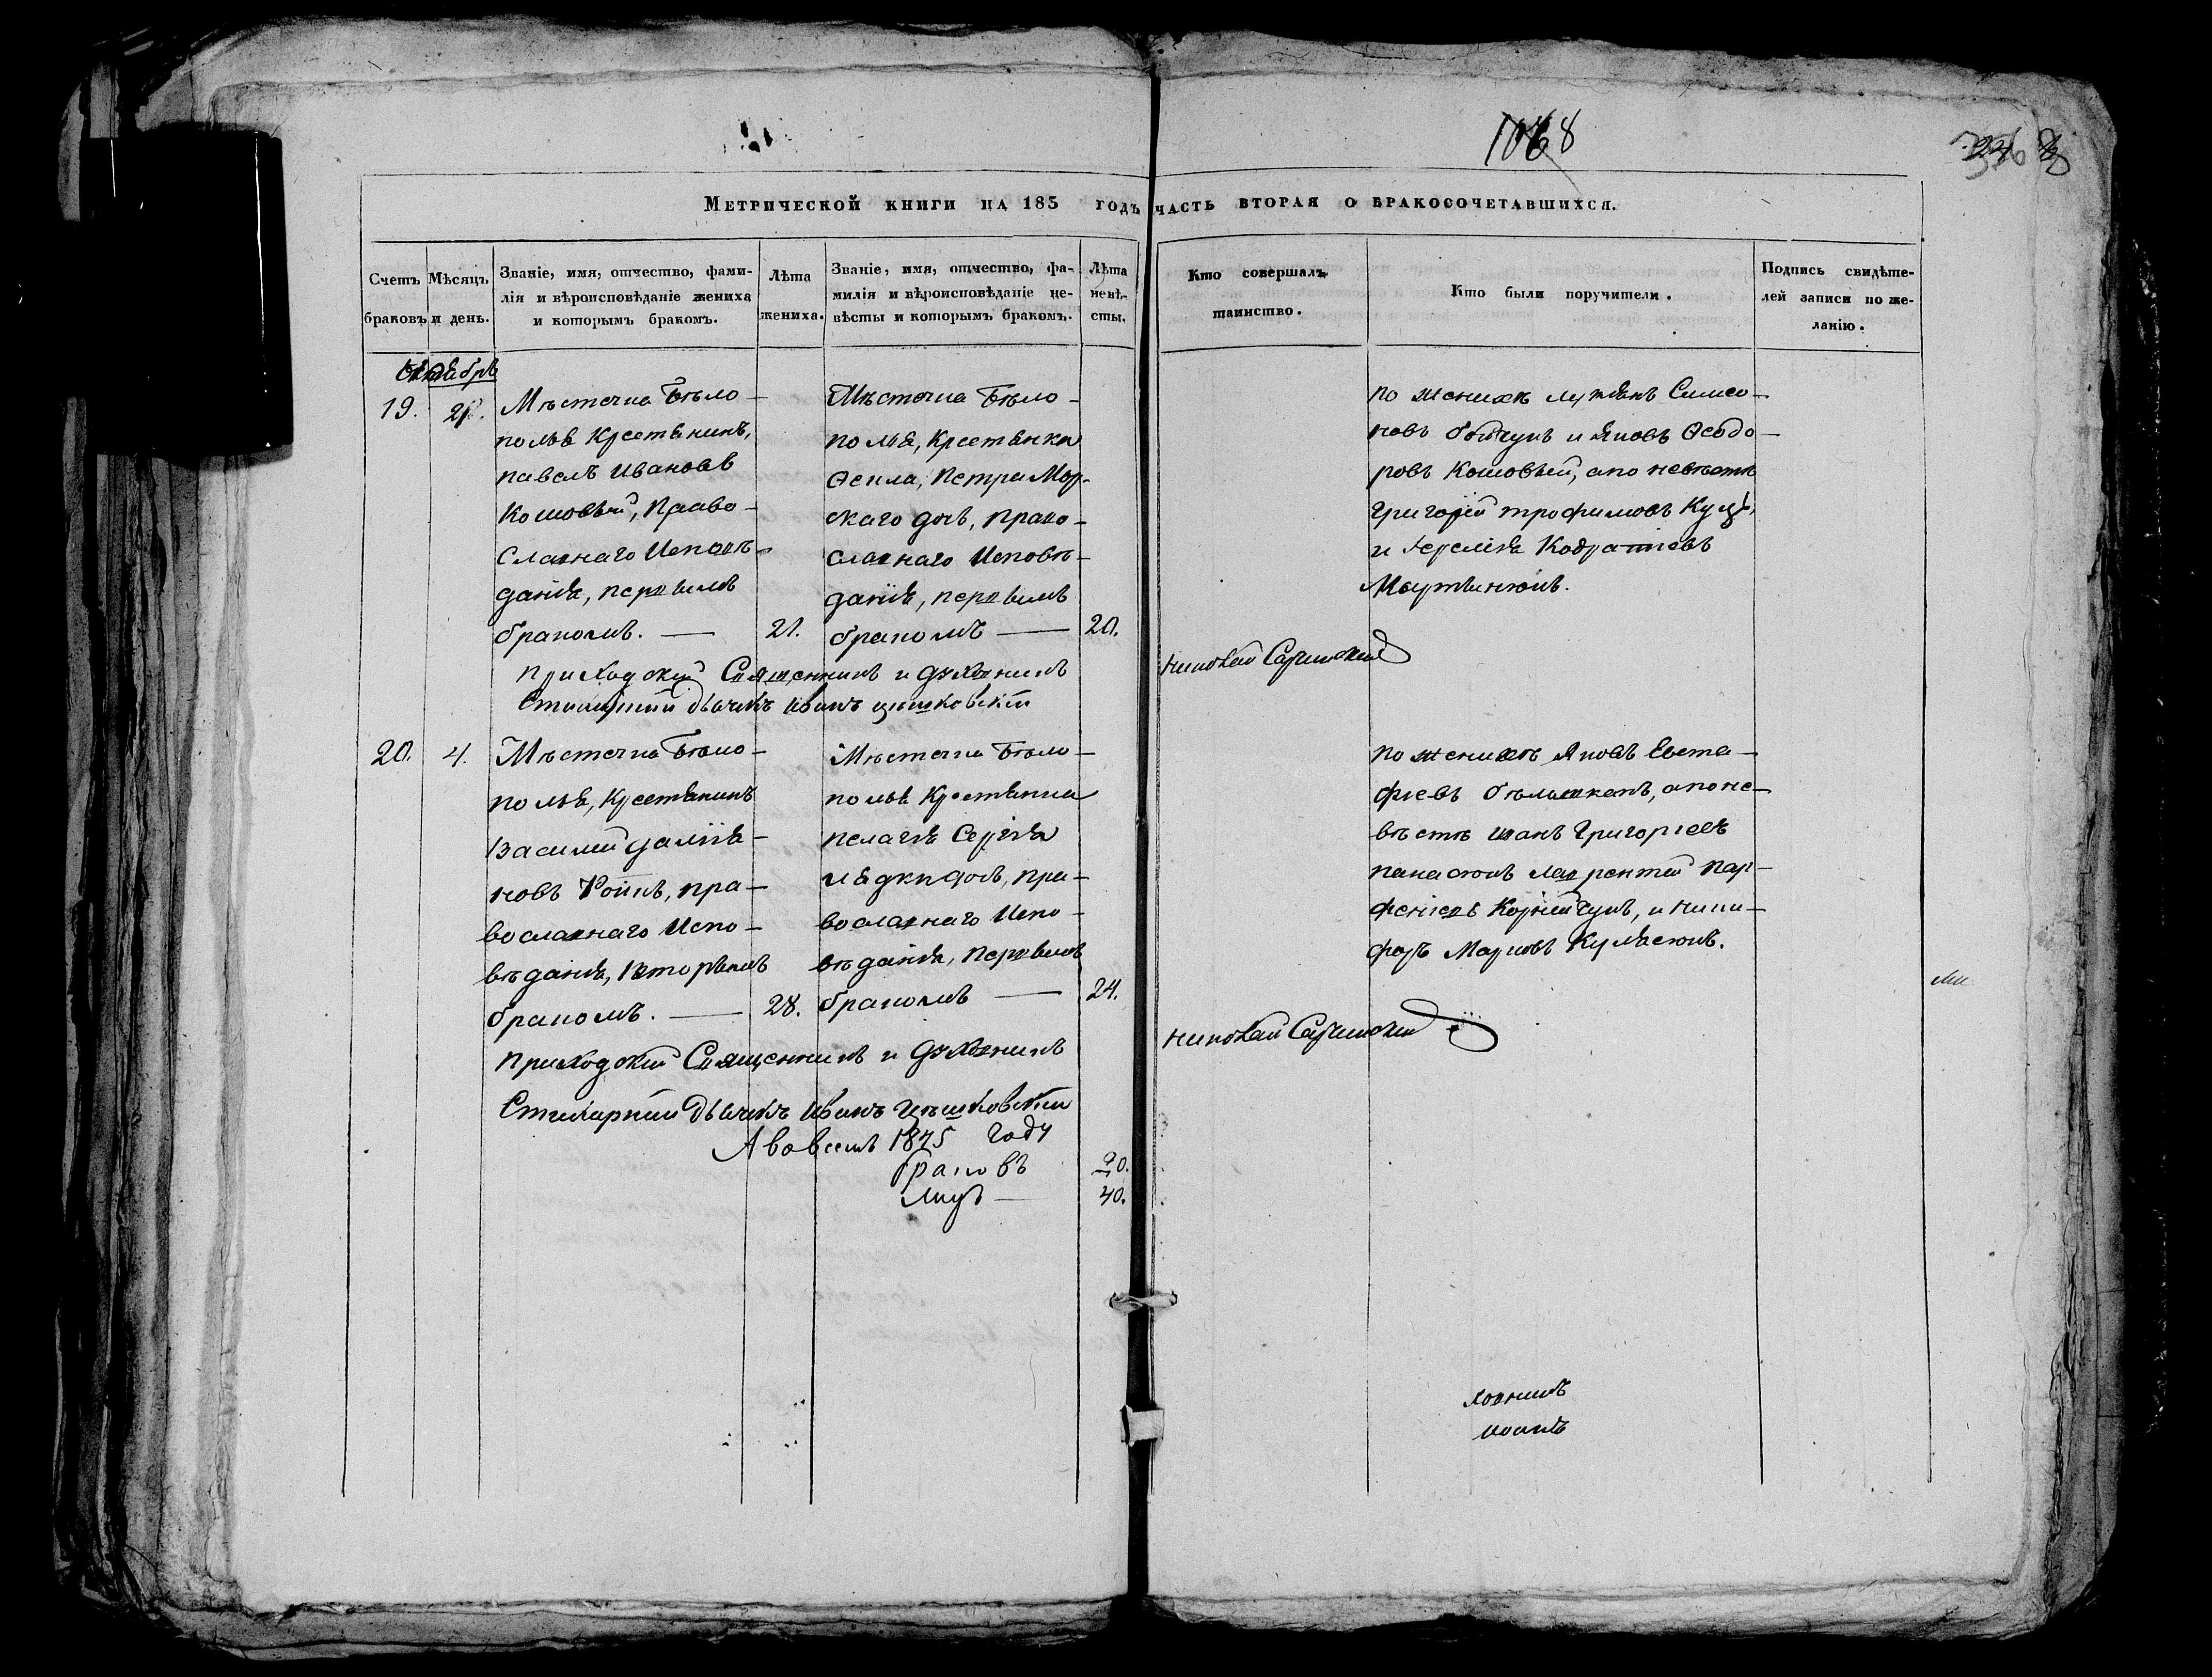 1068
Метрической книги на 185 годъ часть вторая о бракосочетавшихся.
Счетъ браковъ
Мѣсяцъ и день.
Званіе, имя, отчество, фами-
лія и вѣроисповѣданіе жениха
и которымъ бракомъ.
Лѣта
жениха.
Званіе, имя, отчество, фа-
милія и вѣроисповѣданіе не-
вѣсты и которымъ бракомъ.
Лѣта
невѣ-
сты.
Кто совершалъ
таинство.
Кто были поручители.
Подпись свидѣте-
лей записи по же-
ланію.
19.
Мѣстечка Бѣло-
полья Крестянинъ,
павелъ Ивановъ
Кошовый, Право-
Славнаго Исповѣ-
данія, первымъ
бракомъ. — 21.
Мѣстечка Бѣло-
полья, Крестянка
Ѳекла, Петра Мор-
скаго дочь, право-
славнаго Исповѣ-
данія, первымъ
бракомъ — 20.
по женихѣ Симео-
новъ и Яковъ Ѳеодо-
ровъ Кошовый, а по невѣстѣ
Григорій трофимовъ
и Кодратіевъ
Мартынюкъ.
приходскій Священникъ и духовникъ
Николай
Стихарный дьячекъ Иванъ Цѣшковскій
20. 4.
Мѣстечка Бѣло-
полья, Крестянинъ
Василий Даміѧ-
новъ Ройкъ, пра-
вославнаго Испо-
вѣданія, вторымъ
бракомъ. — 28.
Мѣстечка Бѣло-
полья Крестянка
пелагія Сергія
дочь, пра-
вославнаго Испо-
вѣданія, первымъ
бракомъ — 24.
по женихѣ Яковъ Евста-
фіевъ а по не-
вѣстѣ Иванъ Григоріевъ
панасюкъ Лаврентій Пар-
феніевъ Корнійчукъ, и Ники-
форъ Марковъ Кулясюкъ.
приходскій Священникъ и духовникъ
Николай
Стихарный Дьячекъ Иванъ Цѣшковскій
А во всемъ 1845 году
браковъ 20.
лицъ — 40.